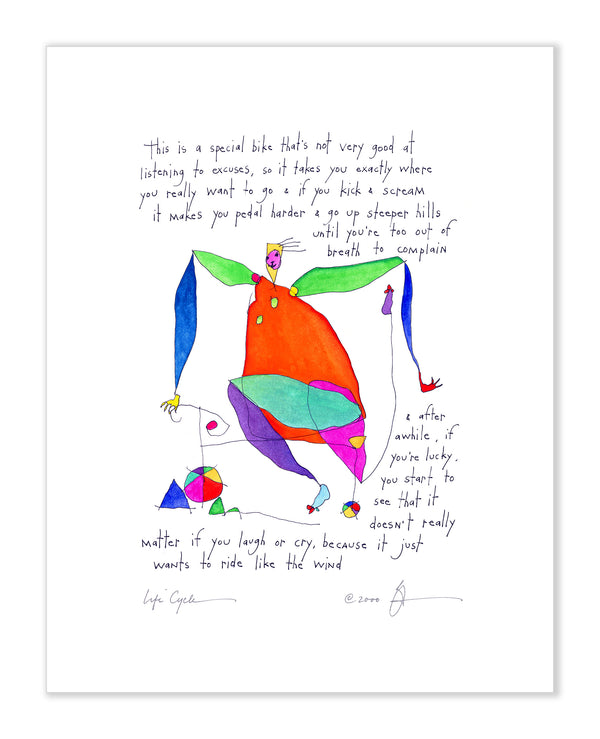 This is a special bike that's not very good at
listening to excuses, so it takes you exactly where
you really want to go & if you kick & scream
it makes you pedal harder & go up steeper hills
until you're too out of
breath to complain
& after
awhile, if
you're lucky,
you start to
see that it
doesn't really
matter if you laugh or cry, because it just
wants to ride like the wind
Life Cycle
©2000